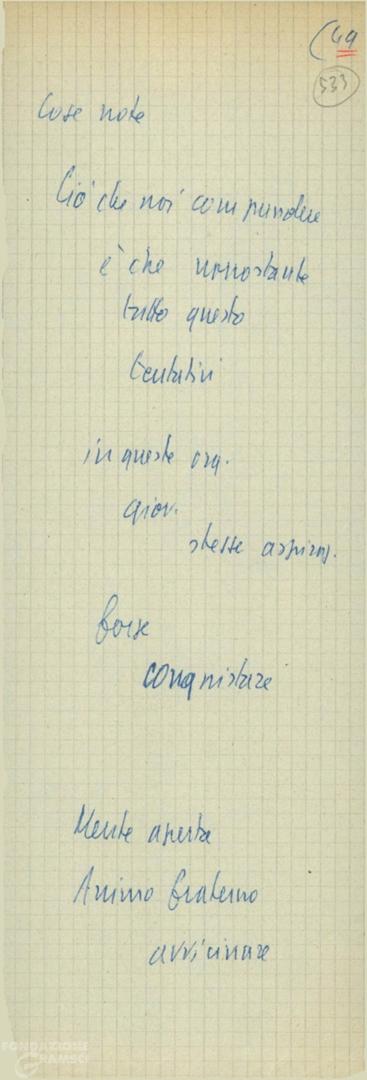 (49
533
Cose note
Ciò che noi comprendere
è che nonostante
tutto questo
tentativi
in queste org.
giov.
stesse aspiraz.
forse
conquistare
Mente aperta
Animo fraterno
avvicinare
FONDAZIONE
GRAMSCI